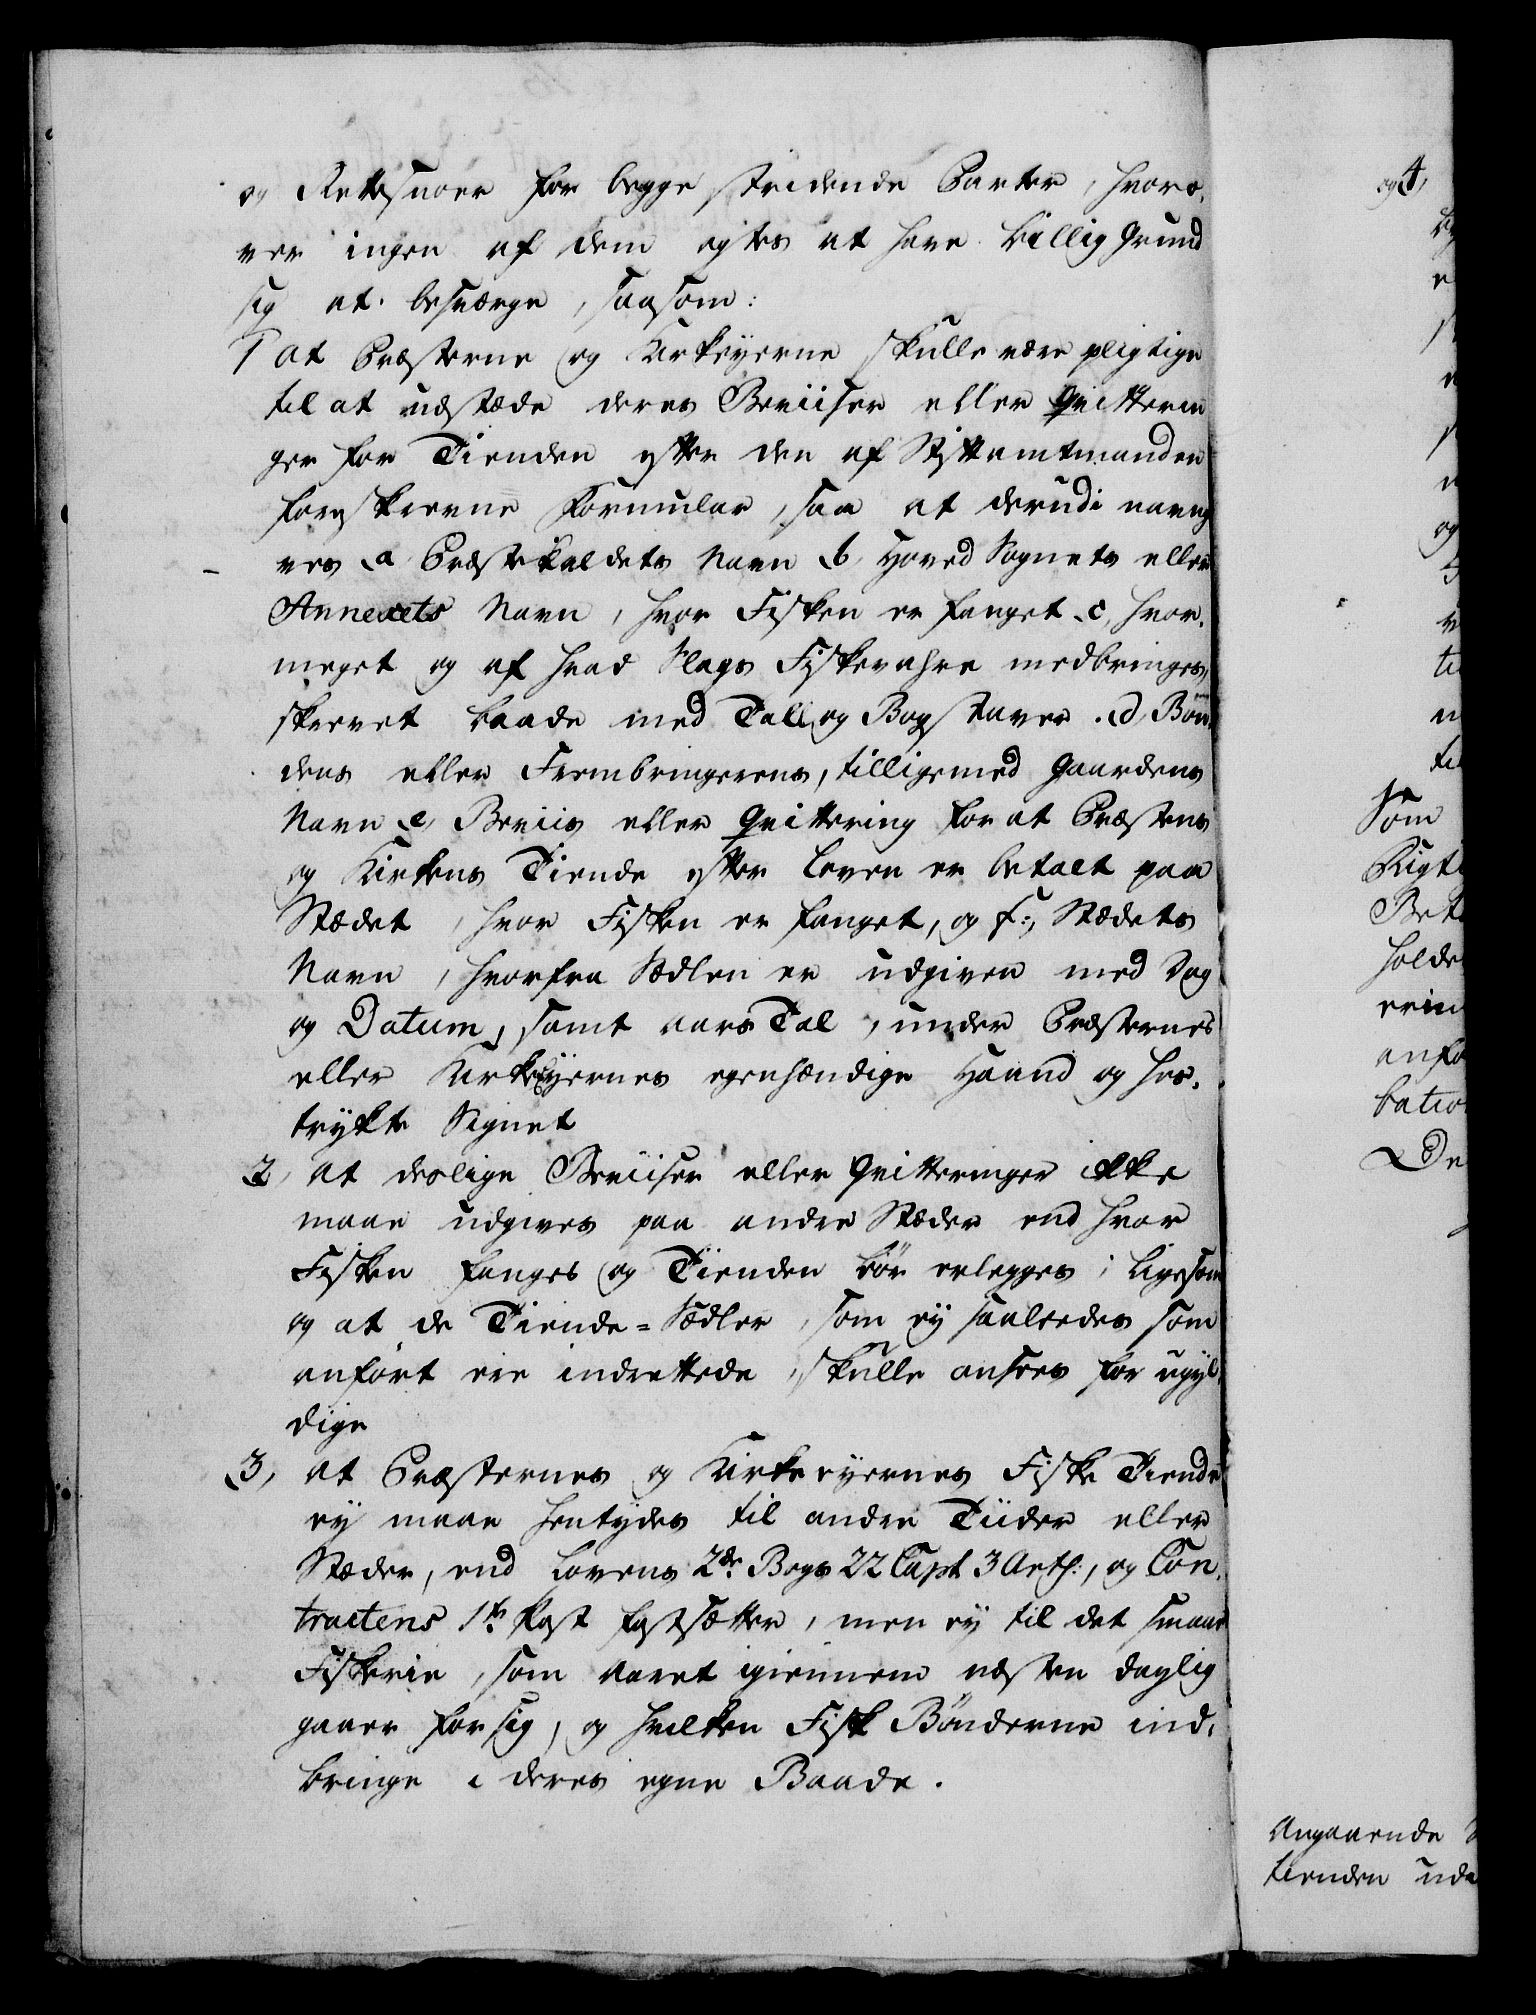 og Rettesnoer for begge stridende Parter, hvoro-
ver ingen af dem agtes at have billig Grund
sig at besværge, saasom:
1 at Præsterne og Kirkeyerne skulle være pligtige
til at udstæde deres Beviiser eller Qvitterin
ger for Tienden efter den af Stiftamtmanden
foreskrevne Formular, saa at derudi nævnes
a Præstekaldets Navn b, Hoved Sognets eller
Annexets Navn, hvor Fisken er fanget c, hvor-
meget og af hvad Slags Fiskevahre medbringes,
skrevet baade med Tall og Bogstaver. d, Bon-
dens eller Frembringerens, tilligemed Gaardens
Navn e, Beviis eller Qvittering for at Præstens
og Kirkens Tiende efter Loven er betalt paa
Stædet, hvor Fisken er fanget, og f:, Stædets
Navn, hvorfra Sedlen er udgiven med Dag
og Datum, samt Aars Tal, under Præsternes
eller Kirkeyernes egenhændige Haand og hos-
trykte Signet
2, at deslige Beviiser eller Qvitteringer ikke
maae udgives paa andre Stæder end hvor
Fisken fanges og Tienden bør erlegges; ligesom
og at de Tiende=Sedler, som ey saaledes som
anført ere indrettede, skulle ansees for ugyl-
dige
3, at Præsternes og Kirkeeyernes Fiske Tiende
ey maae hentydes til andre Tiider eller
Stæder, end Lovens 2de Bogs 22 Capt 3 Art:, og Con-
tractens 1te Post fastsætter, men ey til det smaae
Fiskerie, som Aaret igiennem næsten daglig
gaaer for sig, og hvilken Fisk Bønderne ind-
bringe i deres egne Baade.
og 4,
Som
holde
anfø
Angaaende
tienden ude